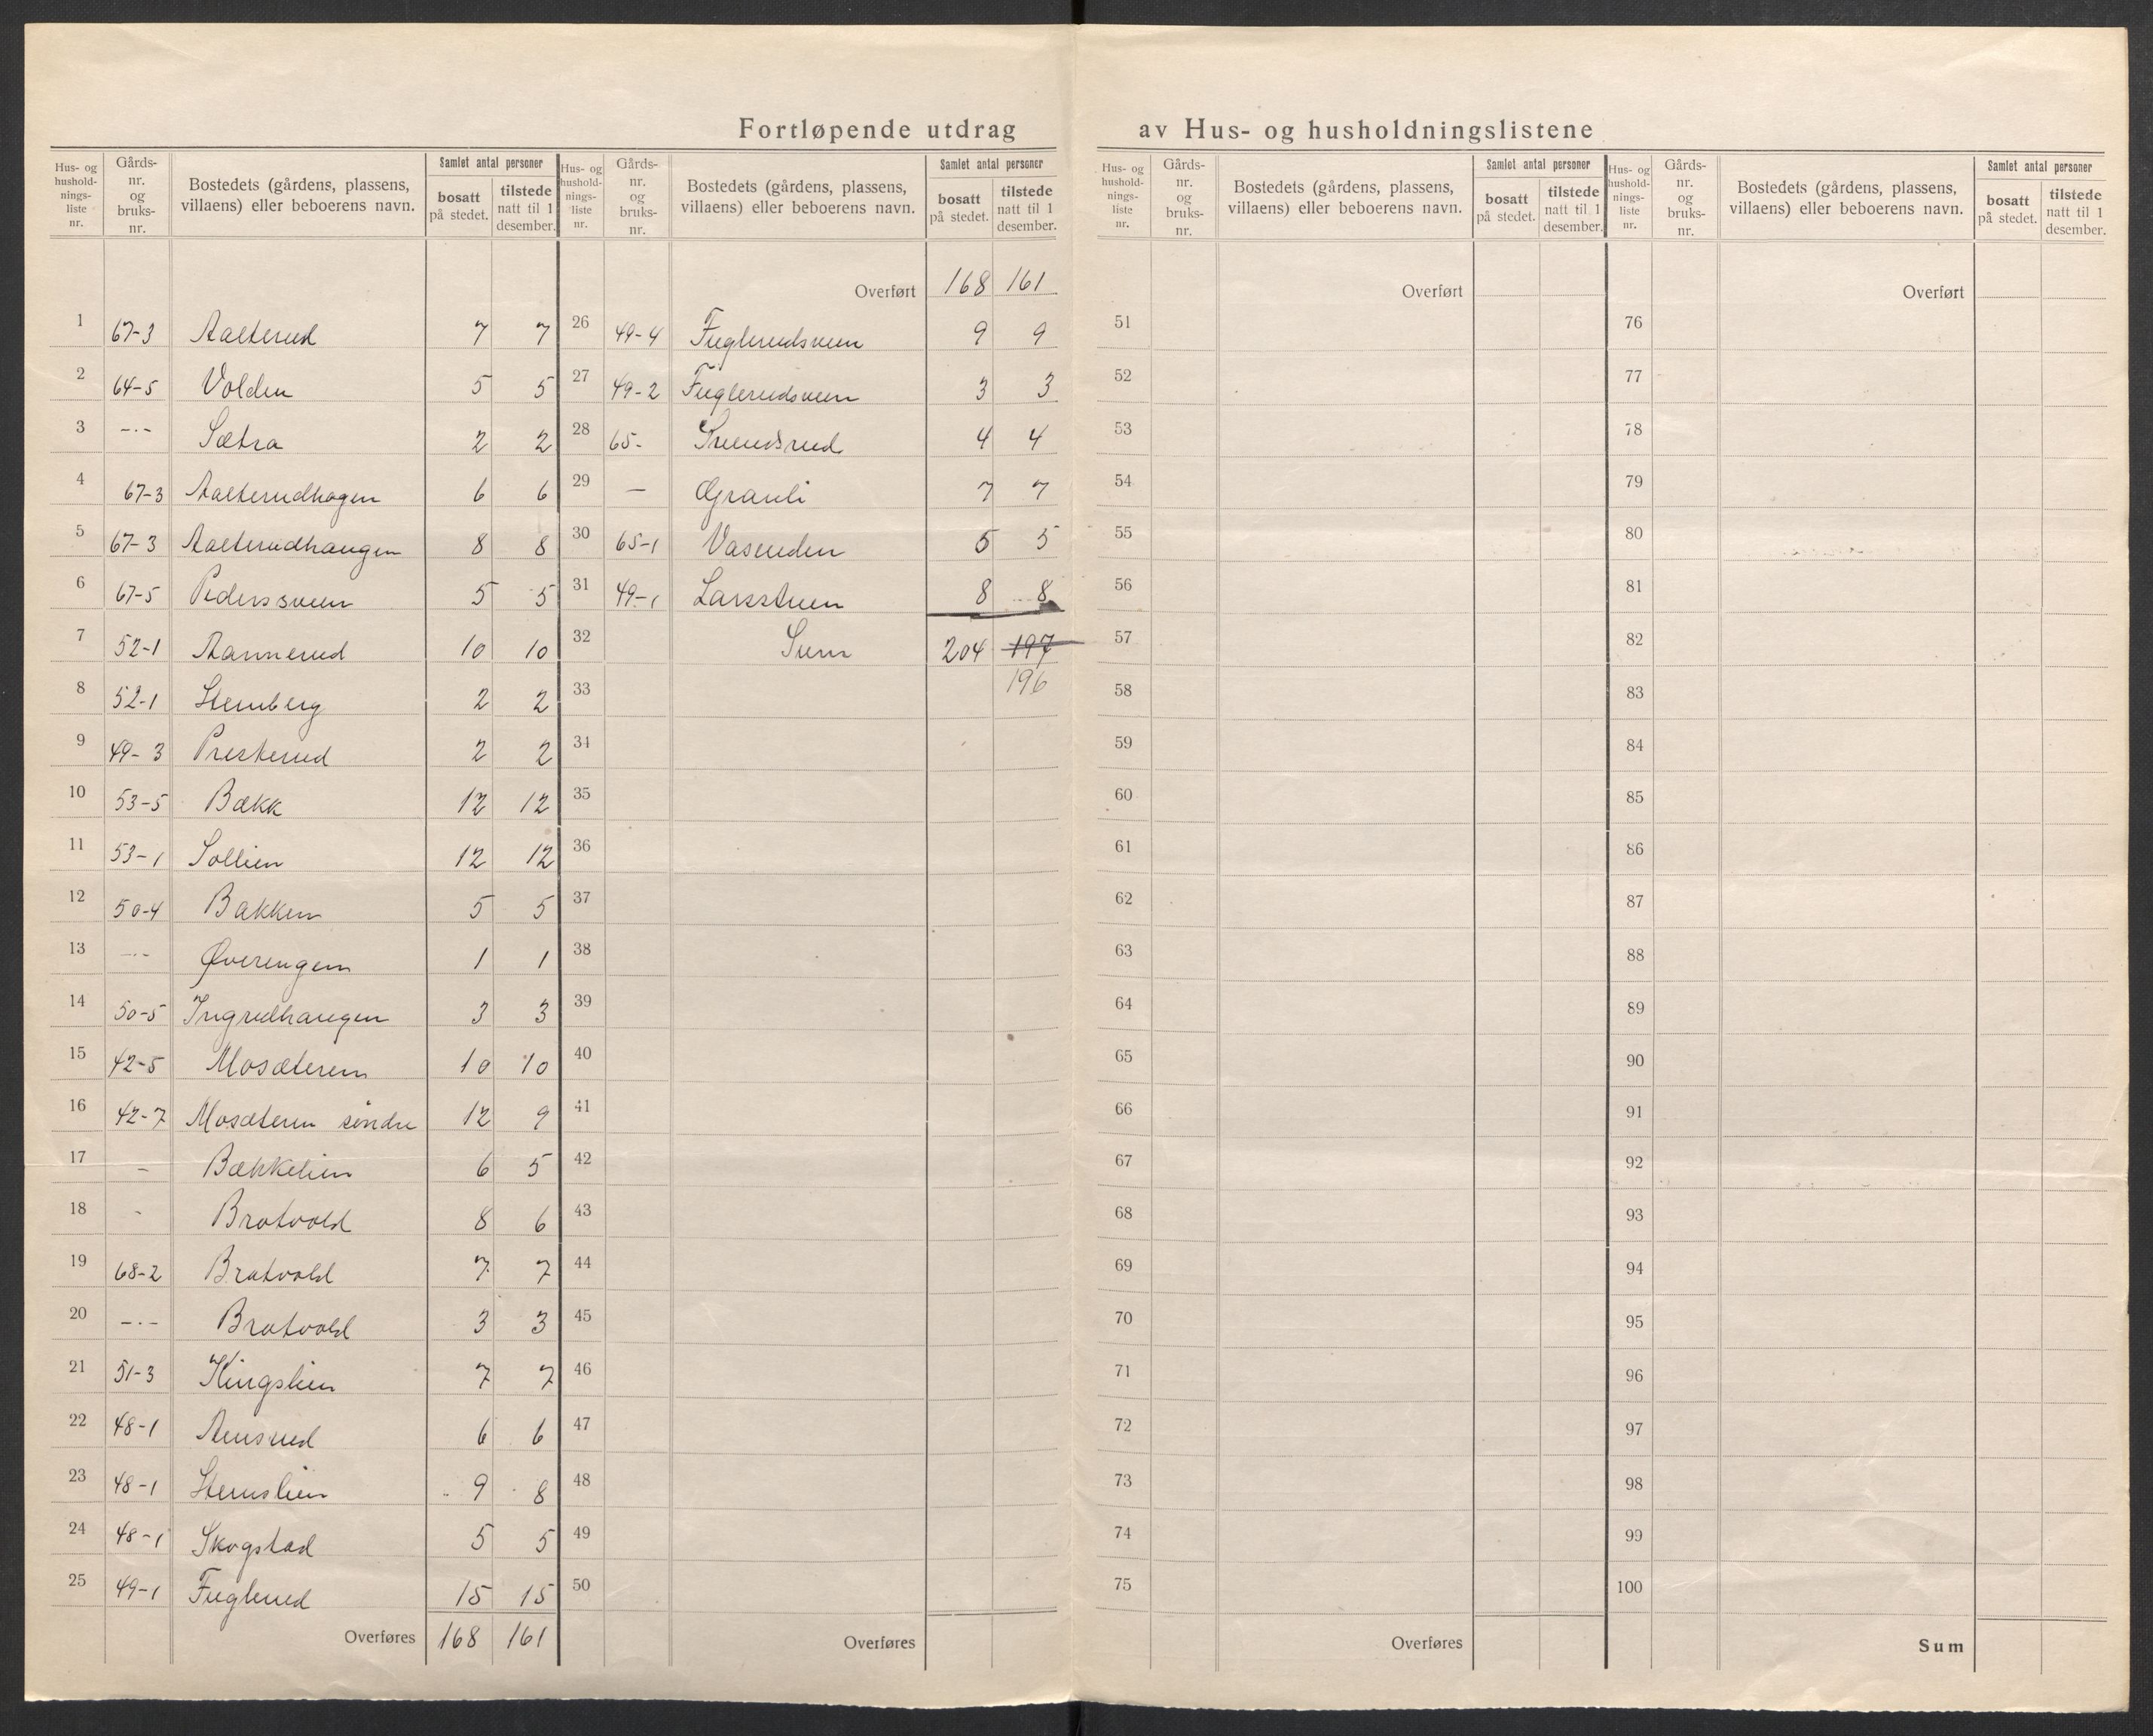 Fortløpende utdrag av Hus- og husholdningslistene
Hus- og hushold- nings- liste nr. | Gårds- nr. og bruks- nr. | Bostedets (gårdens, plassens, villaens) eller beboerens navn. | Samlet antal personer | bosatt på stedet. | tilstede natt til 1 desember.
1 67-3 Aalterud 7 7
2 64-5 Volden 5 5
3 -·- Sætra 2 2
4 67-3 Aalterudhagen 6 6
5 67-3 Aalterudhaugen 8 8
6 67-5 Pederssveen 5 5
7 52-1 Aannerud 10 10
8 52-1 Stenberg 2 2
9 49-3 Presterud 2 2
10 53-5 Bækk 12 12
11 53-1 Sollien 12 12
12 50-4 Bakken 5 5
13 -·- Øverengen 1 1
14 50-5 Ingridhaugen 3 3
15 42-5 Mosæteren 10 10
16 42-7 Mosæteren söndre 12 9
17 - Bækkelien 6 5
18 - Brotvold 8 6
19 68-2 Bratvold 7 7
20 -·- Bratvold 3 3
21 51-3 Kingslien 7 7
22 48-1 6 6
23 48-1 Stenslien 9 8
24 48-1 Skogstad 5 5
25 49-1 Fuglerud 15 15
Overføres 168 161
Hus- og hushold- nings- liste nr. | Gårds- nr. og bruks- nr. | Bostedets (gårdens, plassens, villaens) eller beboerens navn. | Samlet antal personer | bosatt på stedet. | tilstede natt til 1 desember.
Overført 168 161
26 49-4 Fuglerudsveen 9 9
27 49-2 Fuglerudsveen 3 3
28 65- Svendsrud 4 4
29 - Granli 7 7
30 65-1 Vasenden 5 5
31 49-1 Larsstuen 8 8
32 Sum 204 197
33 196
34
35
36
37
38
39
40
41
42
43
44
45
46
47
48
49
50
Overføres
Hus- og hushold- nings- liste nr. | Gårds- nr. og bruks- nr. | Bostedets (gårdens, plassens, villaens) eller beboerens navn. | Samlet antal personer | bosatt på stedet. | tilstede natt til 1 desember.
Overført
51
52
53
54
55
56
57
58
59
60
61
62
63
64
65
66
67
68
69
70
71
72
73
74
75
Overføres
Hus- og hushold- nings- liste nr. | Gårds- nr. og bruks- nr. | Bostedets (gårdens, plassens, villaens) eller beboerens navn. | Samlet antal personer | bosatt på stedet. | tilstede natt til 1 desember.
Overført
76
77
78
79
80
81
82
83
84
85
86
87
88
89
90
91
92
93
94
95
96
97
98
99
100
Sum